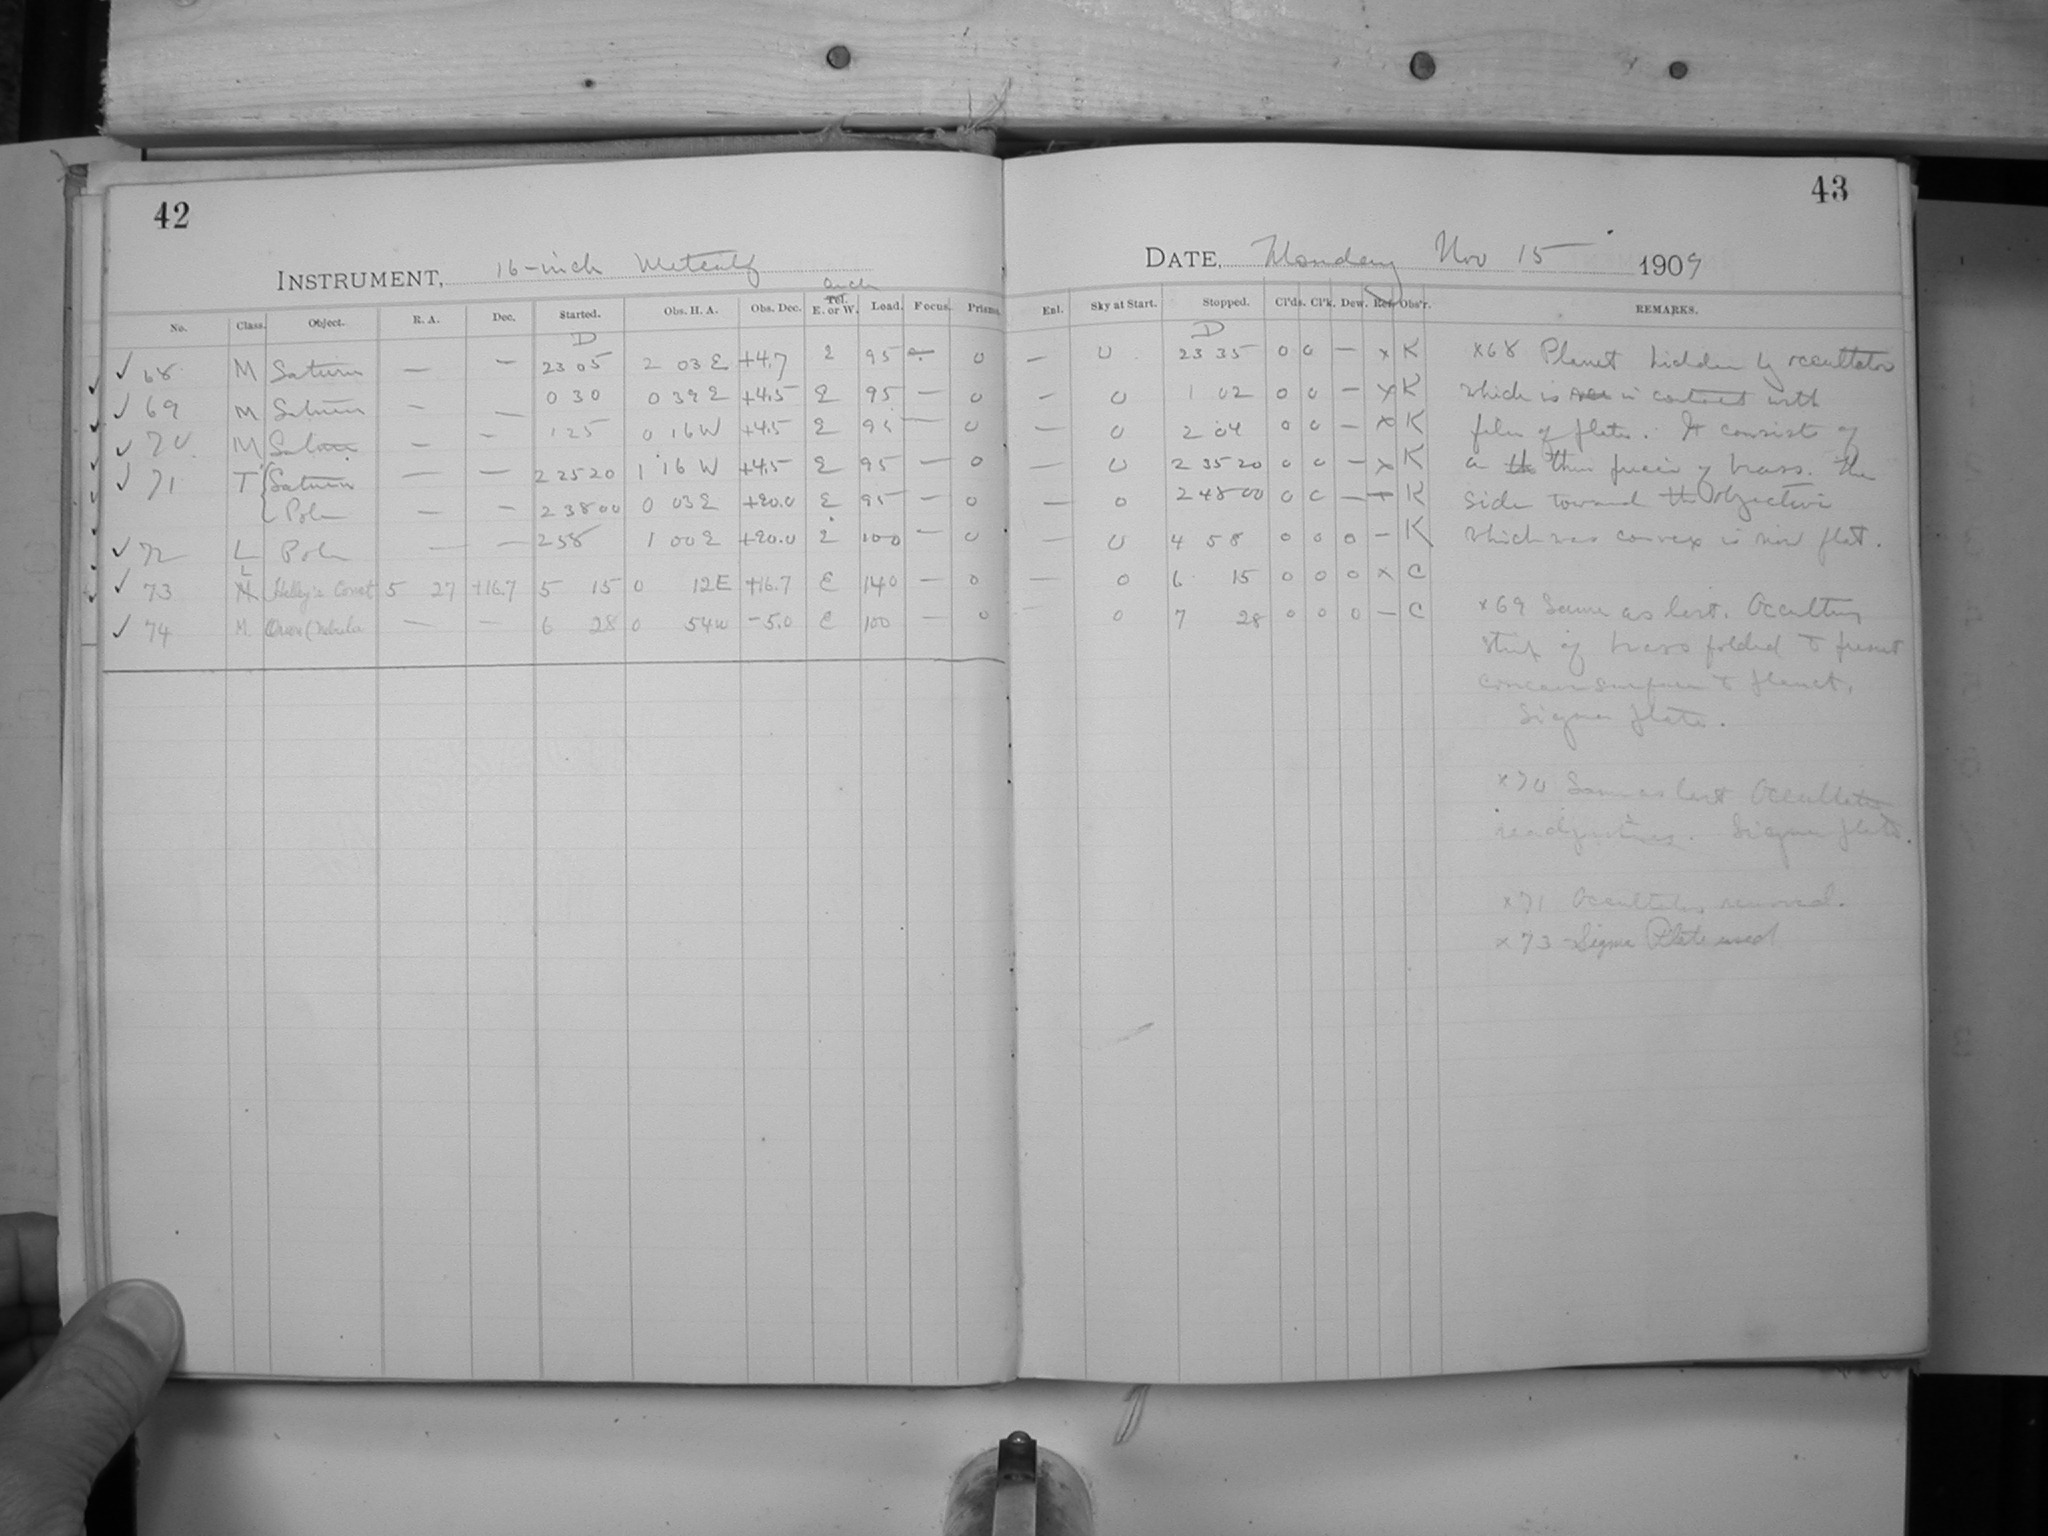 42
43
INSTRUMENT, 16-inch Metcalf
DATE, Monday Nov 15 1909
No. Class. Object. R. A. Dec. Started. Obs. H. A. Obs. Dec. Tel. E. or W. Load. Focus. Prisms. Enl. Sky at Start. Stopped. Cl'ds. Cl'k. Dew. Ref. Obs'r. REMARKS.
D D
✓ 68 M Saturn — — 23 05 2 03 E +4.7 E 95 — 0 — 0 23 35 0 0 — x K
✓ 69 M Saturn — — 0 30 0 39 E +4.5 E 95 — 0 — 0 1 02 0 0 — x K
✓ 70 M Saturn — — 1 25 0 16 W +4.5 E 95 — 0 — 0 2 04 0 0 — x K
✓ 71 T Saturn — — 2 25 20 1 16 W +4.5 E 95 — 0 — 0 2 35 20 0 0 — x K
Pole — — 2 38 00 0 03 E +20.0 E 95 — 0 — 0 2 48 00 0 0 — — K
✓ 72 L Pole — — 2 58 1 00 E +20.0 E 100 — 0 — 0 4 58 0 0 0 — K
✓ 73 L Halley's Comet 5 27 +16.7 5 15 0 12 E +16.7 E 140 — 0 — 0 6 15 0 0 0 x C
✓ 74 M Orion (Nebula — — 6 28 0 54 w −5.0 E 100 — 0 0 7 28 0 0 0 — C
x68 Planet hidden by occultator
which is in contact with
film of plate. It consists of
a thin piece of brass. The
side toward the objective
which was convex is now flat.
x69 Same as last. Occulting
strip of brass folded to present
concave surface to planet.
Sigma plate.
x70 Same as last Occultator
readjusted. Sigma plate.
x71 Occultator removed.
x73 Sigma Plate used